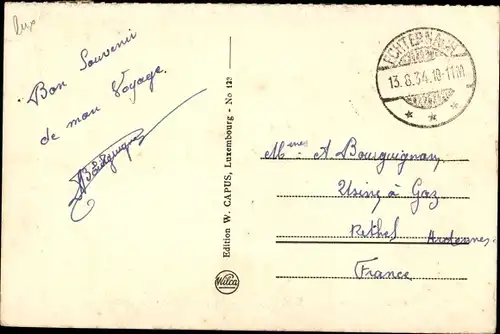 Lux
Bon Souvenir
de mon Voyage.
ABourguignon
Edition W. CAPUS, Luxembourg - No 123
Wilca
ECHTERNACH
13.8.34.10-11
Mmes A. Bourguignon
Usine à Gaz
Rethel Ardennes.
France